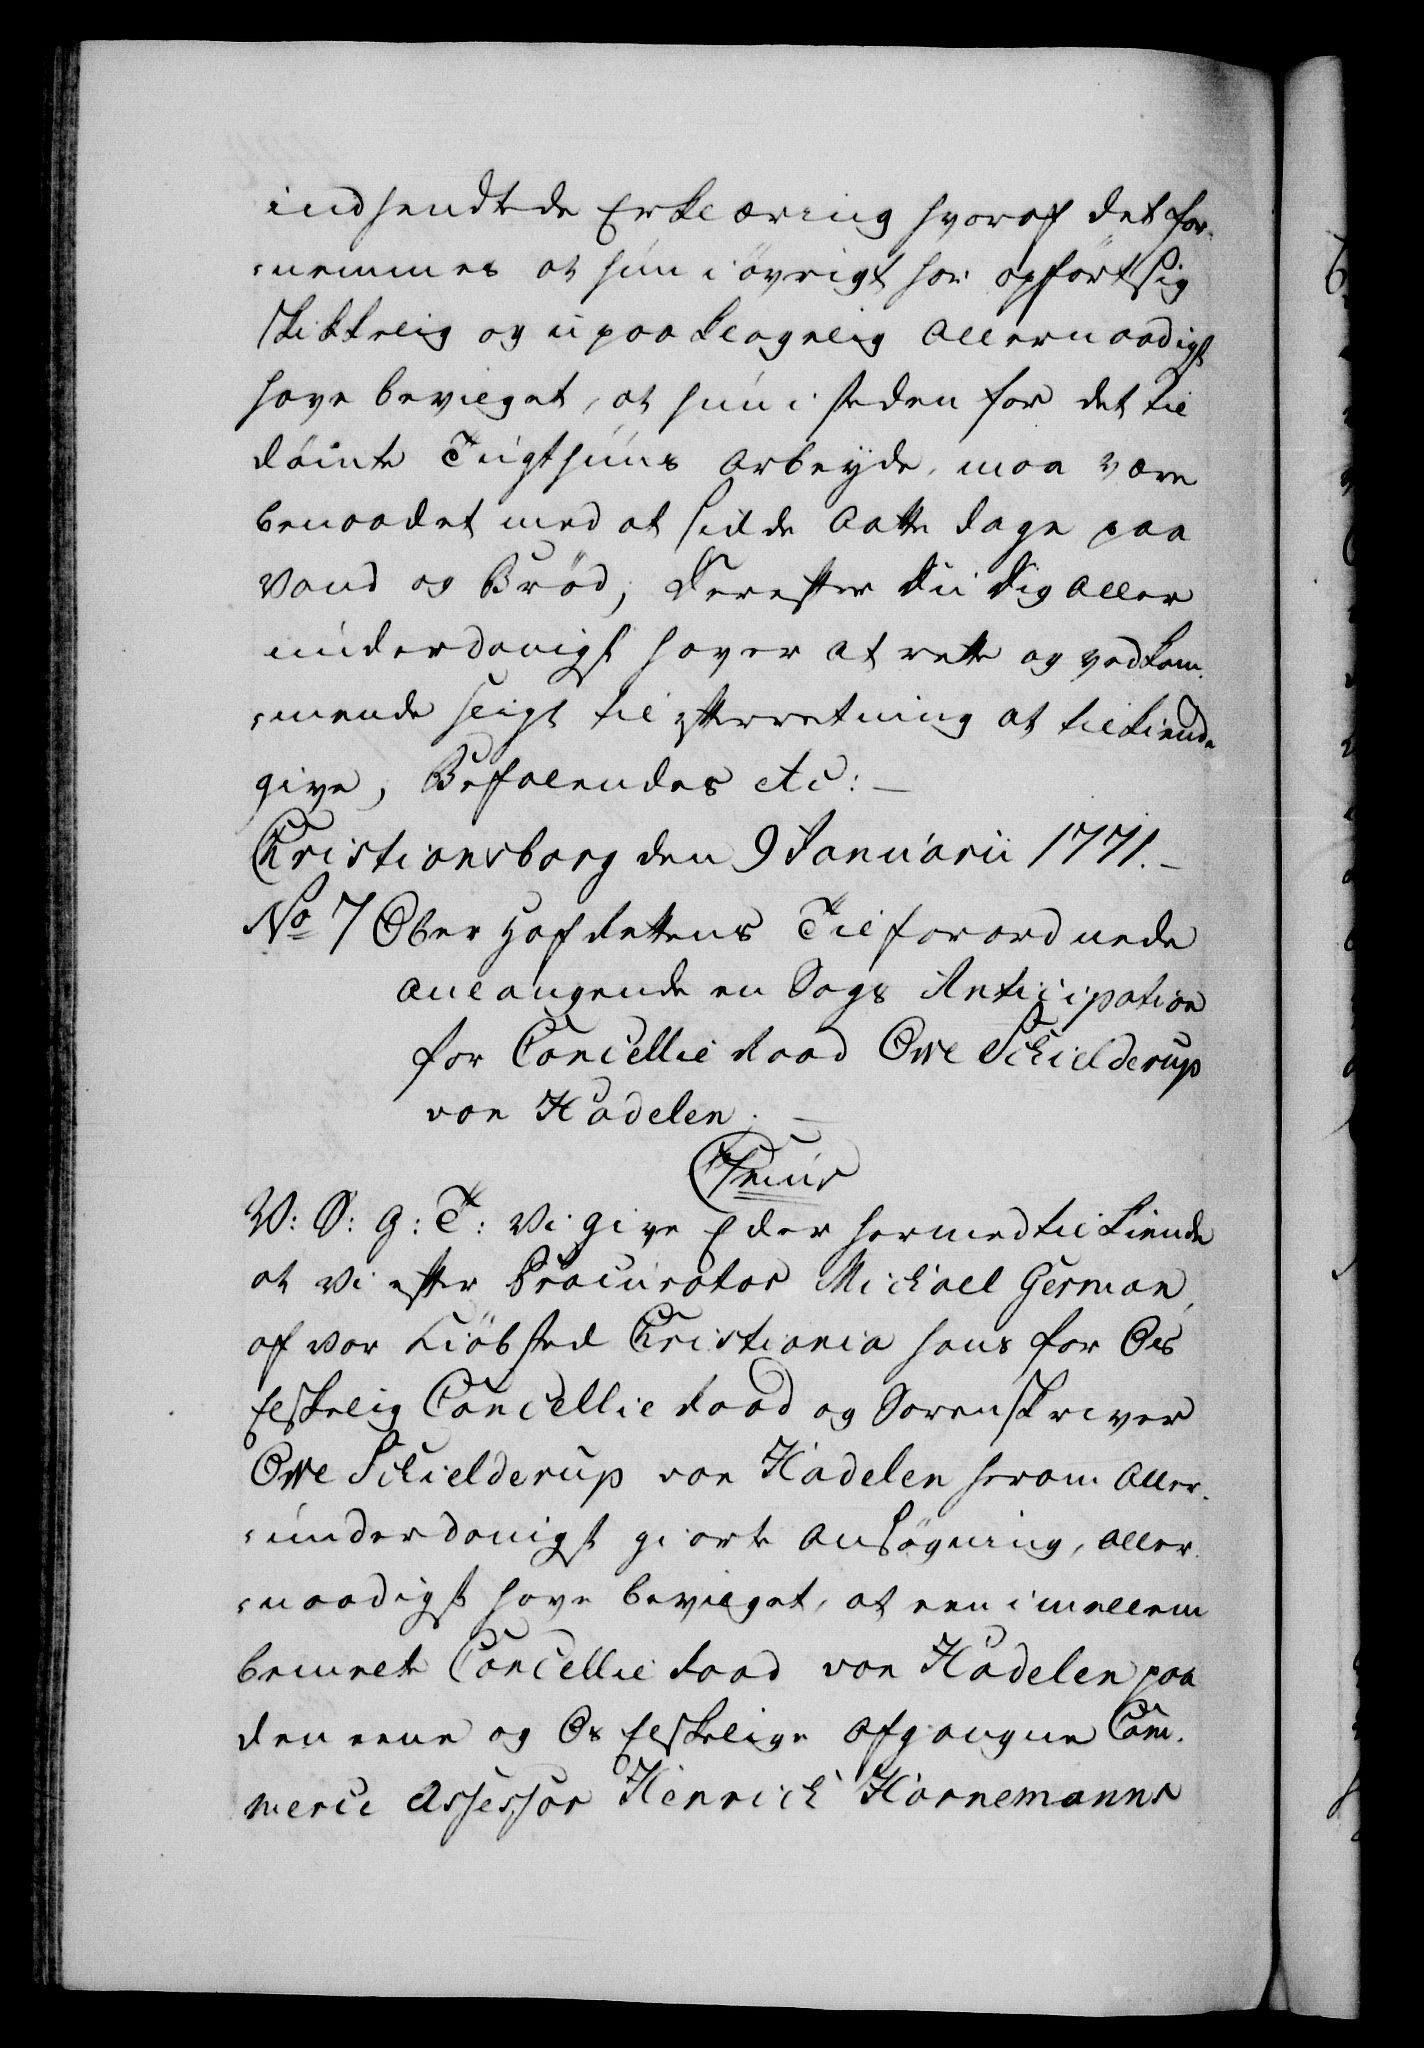 indsendtede Erklæring hvoraf det for-
-nemmes at hun i övrigt har opfört sig
skikkelig og upaaklagelig Allernaadigst
have bevilget, at hun i steden for det til
dömte Tugthuus Arbeyde, maa være
benaadet med at sidde Aatte dage paa
Vand og Bröd; Derefter Du dig Aller
underdanigst haver at rette og vedkom-
-mende sligt til Efterretning at tilkiende
give, Befalendes etc: —
Christiansborg den 9 Januarii 1771. —
No 7 Ober Hof Rettens Tilforordnede
Anlangende en Sags Anticipation
for Cancellie Raad Owe Schielderup
von Hadelen. —
V: S: G: T: Vi give Eder hermed tilkiende
at Vi efter Procurator Michael German,
af vor Kiöbsted Christiania hans for Os
Elskelig Cancellie Raad og Sorenskriver
Owe Schielderup von Hadelen herom Aller-
-underdanigst giorte Ansögning, Aller-
-naadigst have bevilget, at een imellem
bemelte Cancellie Raad von Hadelen paa
den eene og Os Elskelige Afgangne Com-
merce Assessor Henrich Hornemanns